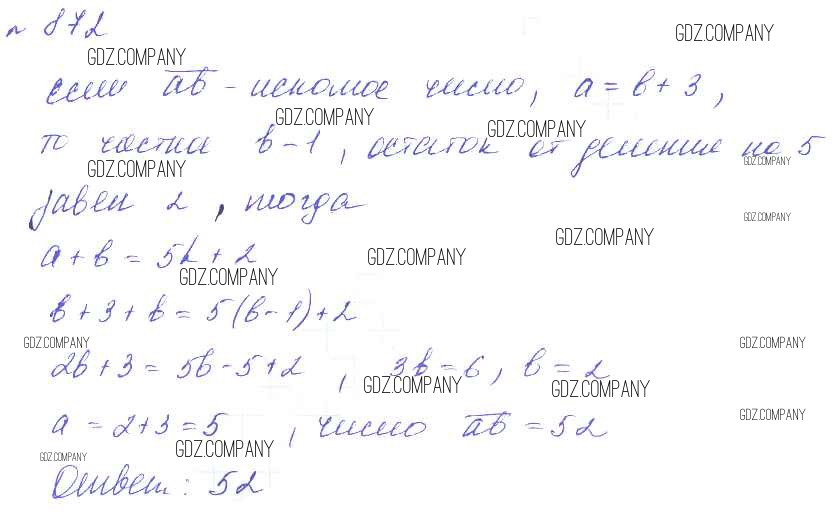 № 872
GDZ.COMPANY GDZ.COMPANY
если ab - искомое число, a = b + 3,
GDZ.COMPANY GDZ.COMPANY
то частное b - 1, остаток от деления на 5
GDZ.COMPANY GDZ.COMPANY
равен 2, тогда
GDZ.COMPANY
GDZ.COMPANY
a + b = 5k + 2
GDZ.COMPANY GDZ.COMPANY
b + 3 + b = 5(b - 1) + 2
GDZ.COMPANY GDZ.COMPANY
2b + 3 = 5b - 5 + 2, 3b = 6, b = 2
GDZ.COMPANY GDZ.COMPANY
GDZ.COMPANY
a = 2 + 3 = 5, число ab = 52
GDZ.COMPANY GDZ.COMPANY
Ответ: 52